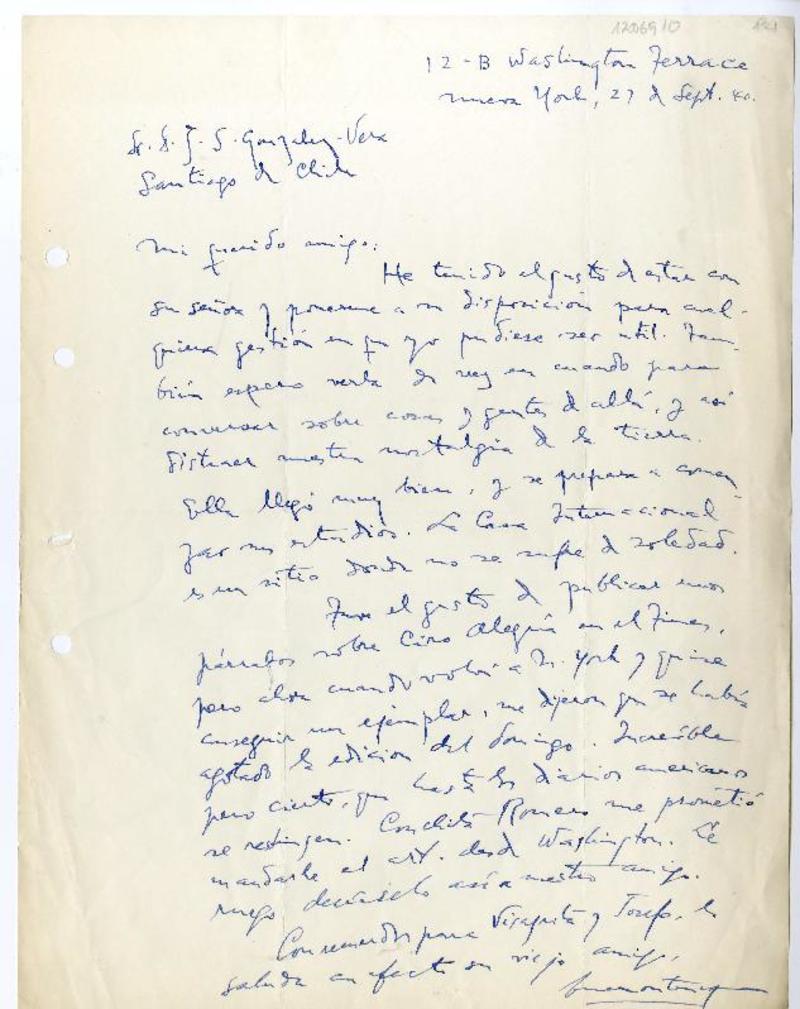 1200910
12-B Washington Terrace
Nueva York, 27 d Sept. 40.
Sr. J. S. González-Vera
Santiago de Chile
Mi querido amigo:
He tenido el gusto de estar con
su señora y ponerme a su disposición para cual-
quiera gestión en que yo pudiese ser util. Tam-
bién espero verla de vez en cuando para
conversar sobre cosas y gentes de allá, y así
distraer nuestra nostalgia de la tierra.
Ella llegó muy bien, y se prepara a comen-
zar sus estudios. La Casa Internacional
es un sitio donde no se sufre de soledad.
Tuve el gusto de publicar unos
párrafos sobre Ciro Alegría en el Times,
pero ahora cuando volví a N. York y quise
conseguir un ejemplar, me dijeron que se había
agotado la edición del domingo. Increíble
pero cierto, que hasta los diarios americanos
se restingen. Conchita Romero me prometió
mandarle el art. desde Washington. Le
ruego decírselo así a nuestro amigo.
Con recuerdos para y , le
saluda con afecto su viejo amigo,